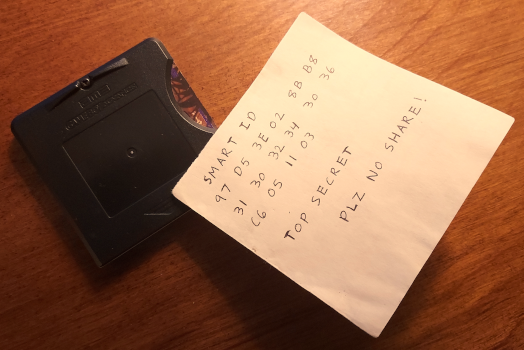 SMART ID
97 D5 3E 02 8B B8
31 30 32 34 30 36
C6 05 11 03
TOP SECRET
PLZ NO SHARE!